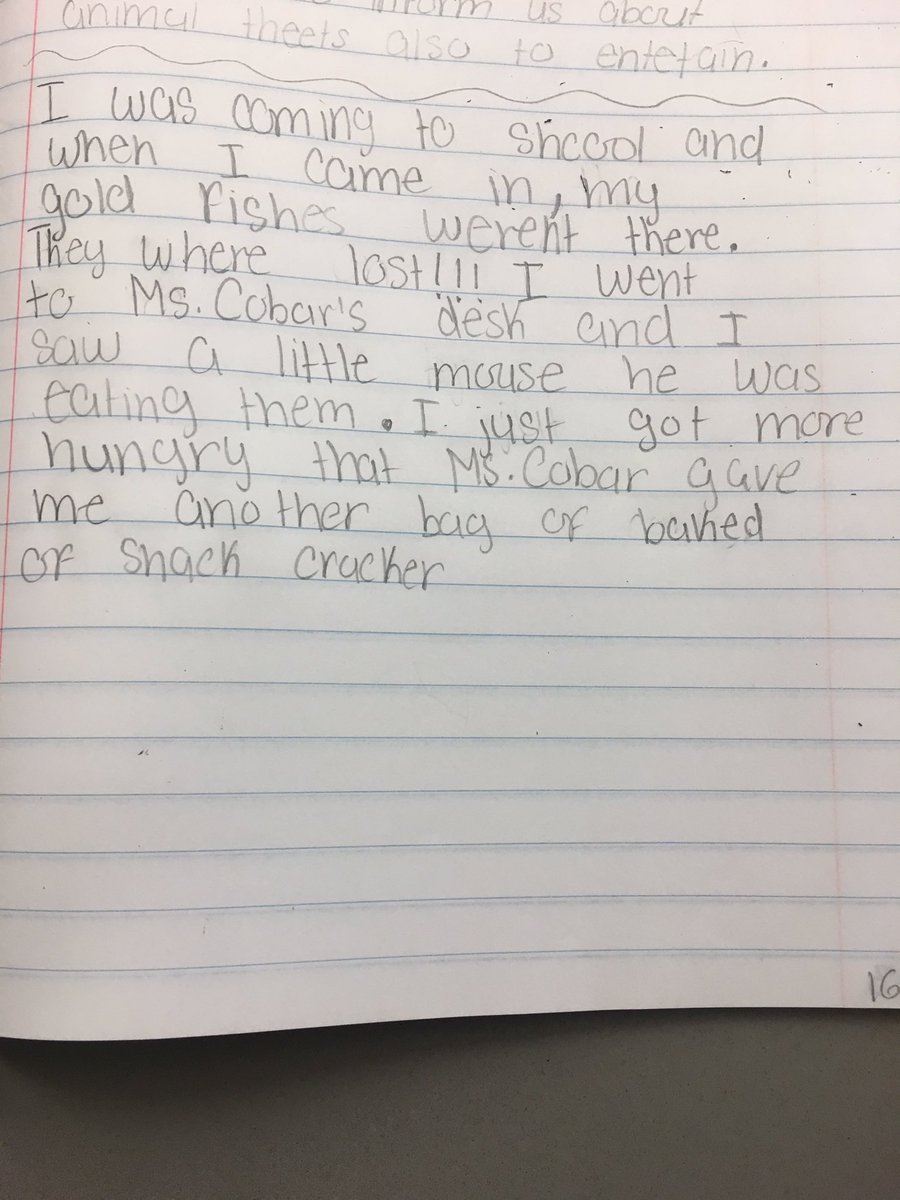 inform us about
animal theets also to entetain.
I was coming to shcool and
when I came in, my
gold fishes weren't there.
They where lost!!! I went
to Ms. Cobar's desk and I
saw a little mouse he was
eating them. I just got more
hungry that Ms. Cobar gave
me another bag of baked
of snack cracker
16